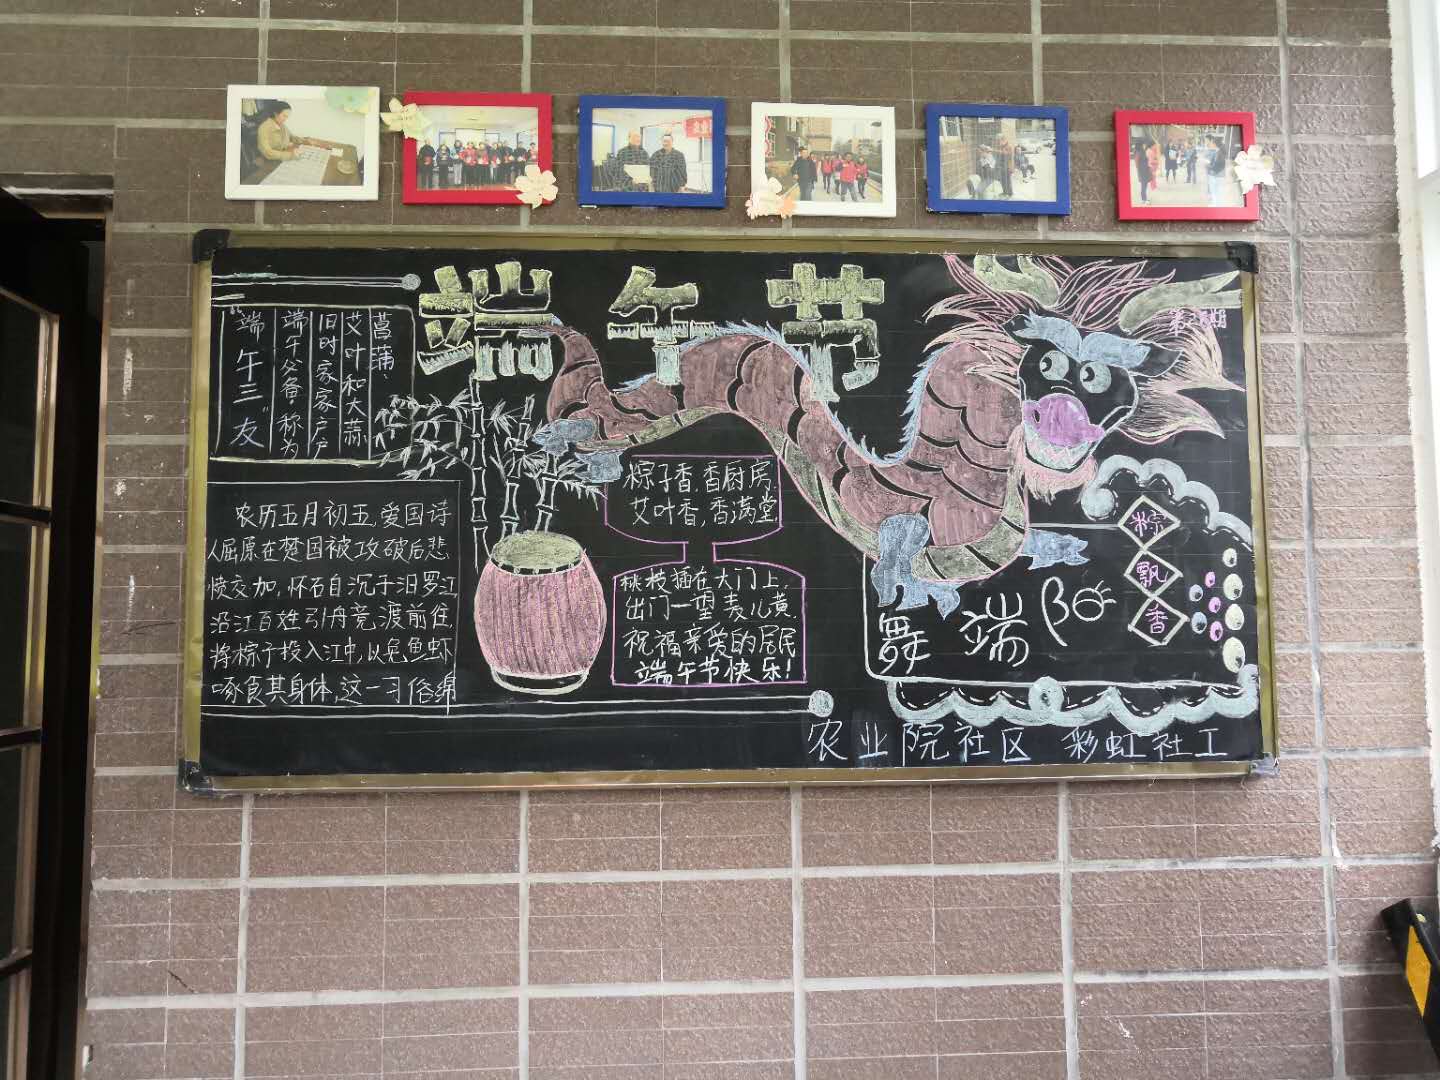 端午节
菖蒲、
艾叶和大蒜
旧时家家户户
端午必备,称为
“端午三友”
农历五月初五,爱国诗
人屈原在楚国被攻破后悲
愤交加,怀石自沉于汨罗江
沿江百姓引舟竞渡前往,
将粽子投入江中,以免鱼虾
啄食其身体,这一习俗绵
粽子香,香厨房,
艾叶香,香满堂
桃枝插在大门上,
出门一望麦儿黄,
祝福亲爱的居民
端午节快乐!
舞端阳
粽
飘
香
农业院社区 彩虹社工